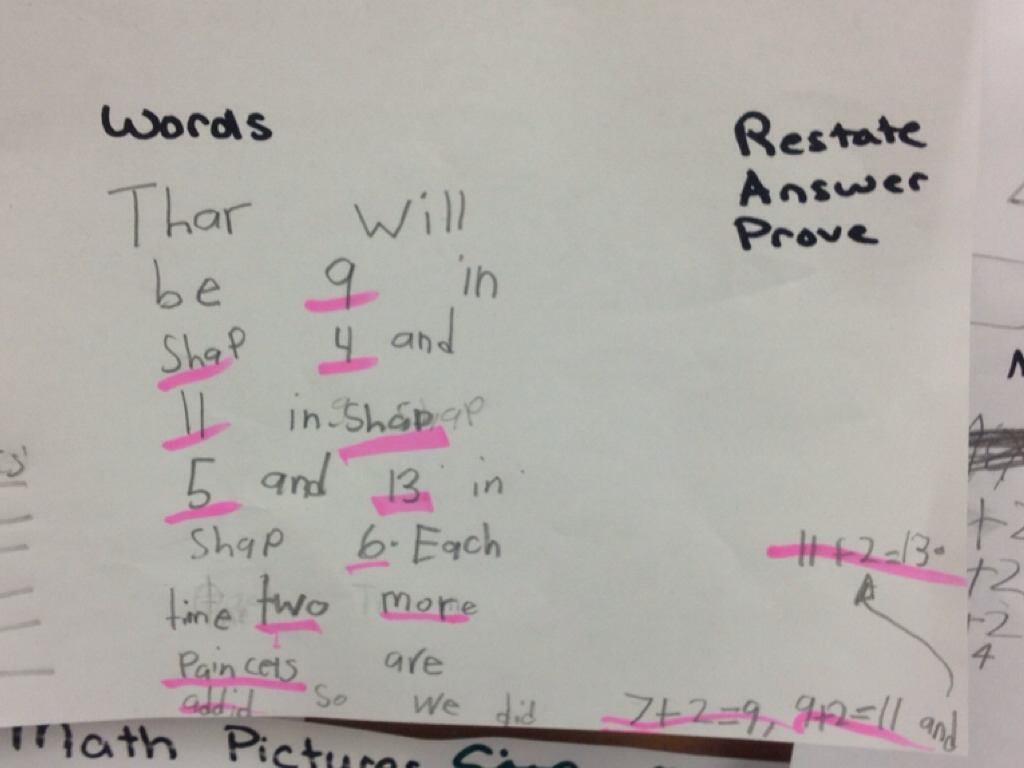 Words
Restate
Answer
Prove
Thar Will
be 9 in
Shap 4 and
11 in Shap
5 and 13 in
Shap 6. Each
time two more
Paincels are
addid so we did 7+2=9, 9+2=11 and
11+2=13.
Math Pictures
+2
+2
4